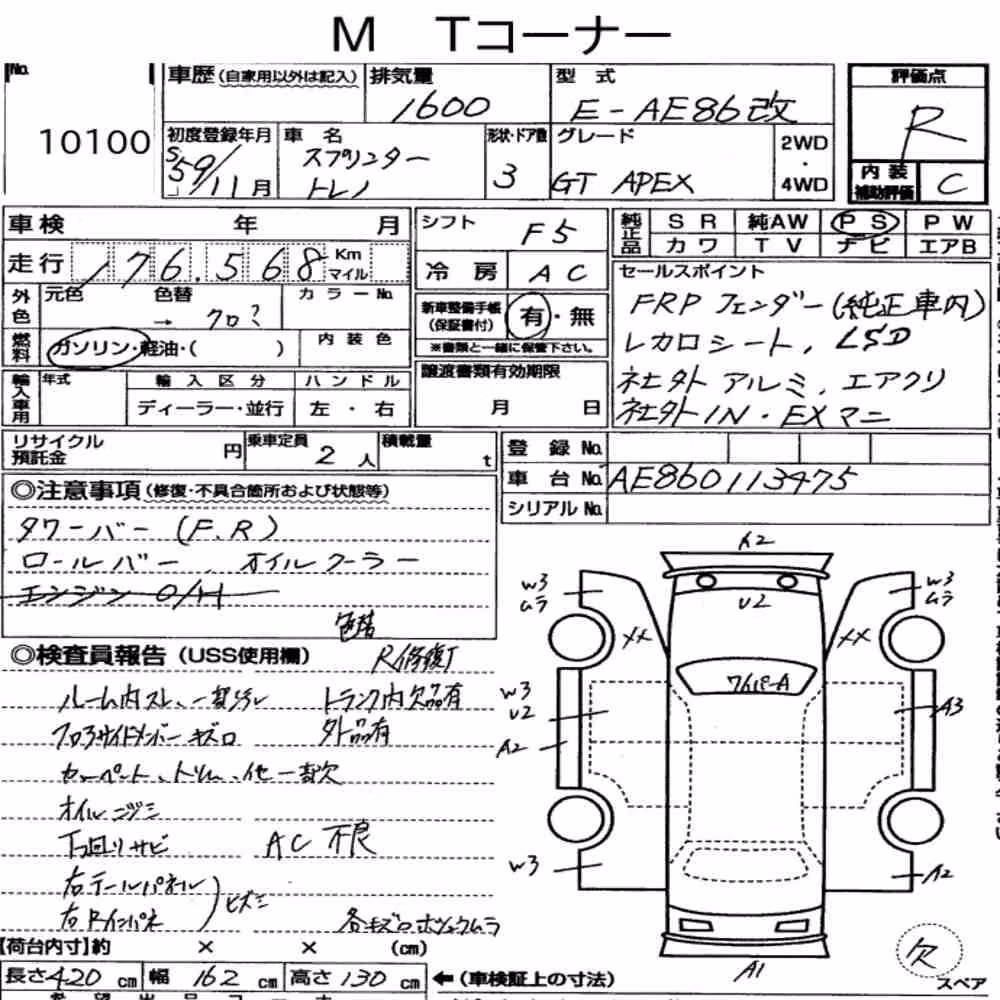 M Tコーナー
No.
10100
車歴(自家用以外は記入)
排気量
1600
型式
E-AE86改
評価点
R
初度登録年月
S59/11月
車名
スプリンター
トレノ
形状・ドア数
3
グレード
GT APEX
2WD
・
4WD
内装
補助評価
C
車検 年 月
走行 176.568 Km マイル
シフト
F5
冷房 AC
純正品
SR 純AW PS PW
カワ TV ナビ エアB
外色
元色 色替 → クロ?
カラーNo.
新車整備手帳
(保証書付)
有・無
※書類と一緒に保管下さい。
セールスポイント
FRP フェンダー(純正車内)
レカロシート、LSD
社外アルミ、エアクリ
社外IN・EXマニ
燃料
ガソリン・軽油・( )
内装色
輸入車用
年式
輸入区分
ディーラー・並行
ハンドル
左・右
譲渡書類有効期限
月 日
リサイクル
預託金
円
乗車定員
2人
積載量
t
登録No.
車台No. AE860113475
シリアルNo.
◎注意事項(修復・不具合箇所および状態等)
タワーバー(F.R)
ロールバー、オイルクーラー
エンジンO/H
色替
◎検査員報告(USS使用欄)
R修復
トランク内欠品有
外品有
フロアサイドメンバーキズロ
カーペット、トリム、他一部欠
オイルニジミ
下回りサビ
AC不良
右テールパネル
右Rインパネ
ヒズミ
【荷台内寸】約 × × (cm)
長さ420cm 幅162cm 高さ130cm
←(車検証上の寸法)
A2
W3
ムラ
W3
ムラ
U2
XX
XX
ワイパーA
W3
U2
A2
A3
W3
A2
A1
欠
スペア